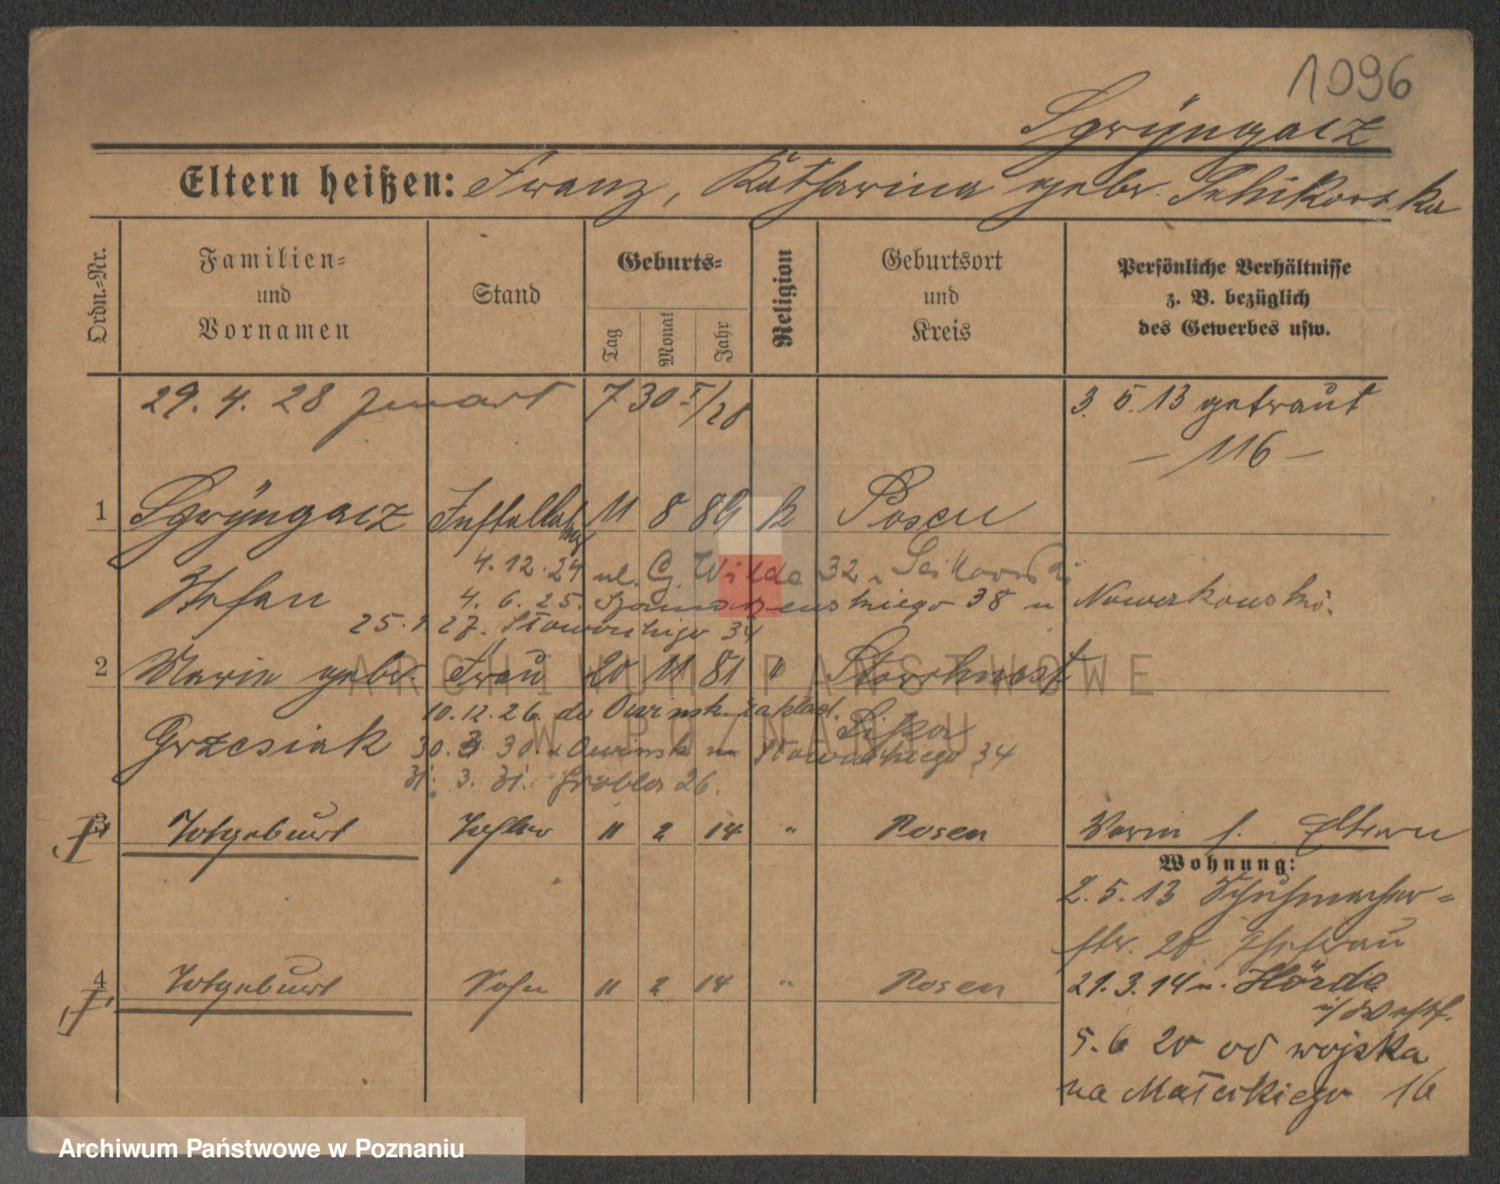 1096
Sprÿngacz
Eltern heißen: Franz, Katharina gebr.
Ordn.-Nr.
Familien-
und
Vornamen
Stand
Geburts-
Tag
Monat
Jahr
Religion
Geburtsort
und
Kreis
Persönliche Verhältnisse
z. B. bezüglich
des Gewerbes usw.
29. 4. 28 7 30 I/28 3. 5. 13 getraut
– 116 –
1 Sprÿngacz 11 8 89 k Posen
4. 12. 24 ul. G. Wilde 32
Stefan 4. 6. 25. 38 u Nowakowski
25. 1. 27. Słowackiego 34
2 Marie gebr. Frau 20 11 81 " Storchnest
10. 12. 26. do Owinsk zakład. Lissa
Grzesiak 30. 3. 30. z Owinsk Słowackiego 34
31. 3. 31. Grobla 26.
3 Totgeburt Tochter 11 2 14 " Posen Verm f. Eltern
Wohnung:
2. 5. 13 Schuhmacher-
str. 20 Ehefrau
4 Totgeburt Sohn 11 2 14 " Posen 21. 3. 14 n. Hörde
i/Westf.
5. 6 20 od wojska
na Matejkiego 16
ARCHIWUM PAŃSTWOWE
W POZNANIU
Archiwum Państwowe w Poznaniu